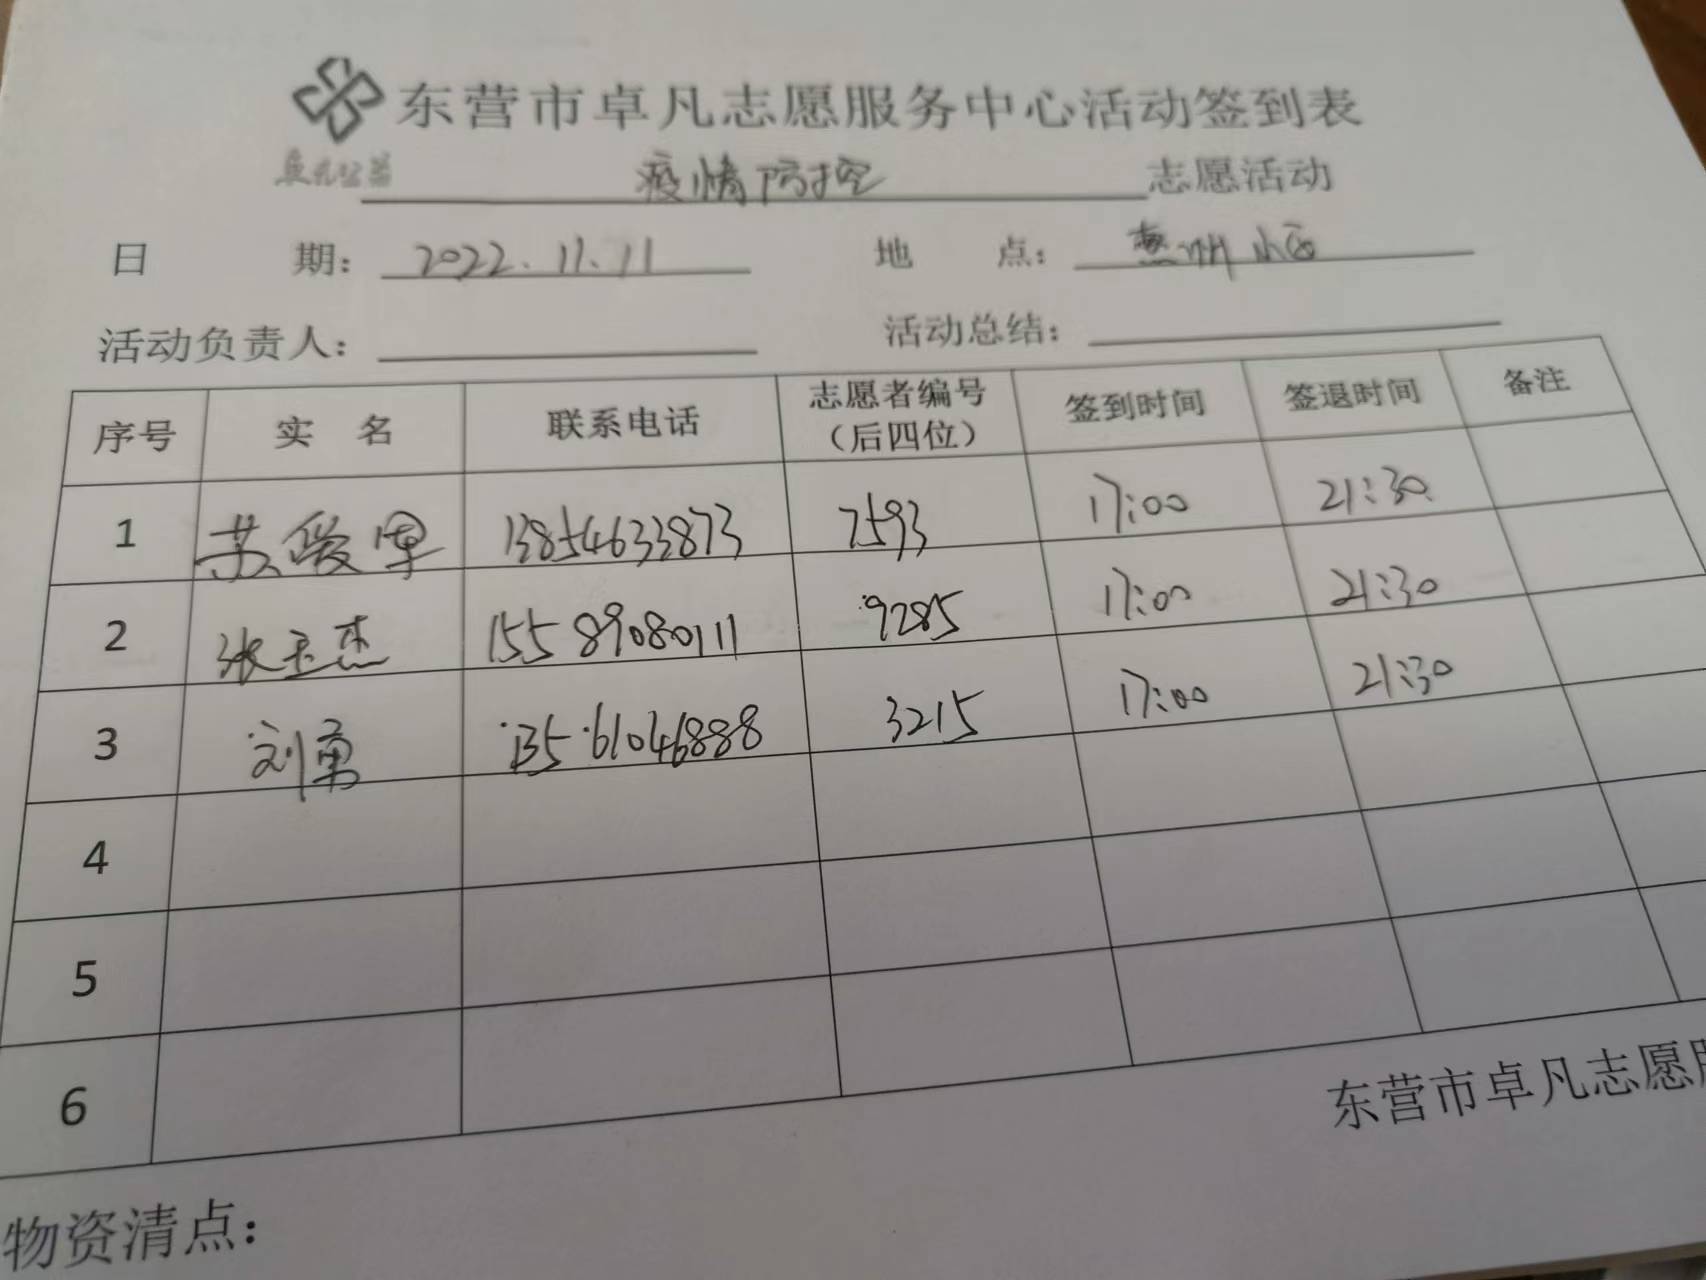 东营市卓凡志愿服务中心活动签到表
疫情防控 志愿活动
日 期: 2022.11.11 地 点: 惠州小区
活动负责人: 活动总结:
序号 实 名 联系电话 志愿者编号（后四位） 签到时间 签退时间 备注
1 苏爱军 13854633873 7593 17:00 21:30
2 张玉杰 15589080111 9285 17:00 21:30
3 刘勇 13561046888 3215 17:00 21:30
4
5
6
东营市卓凡志愿服
物资清点: